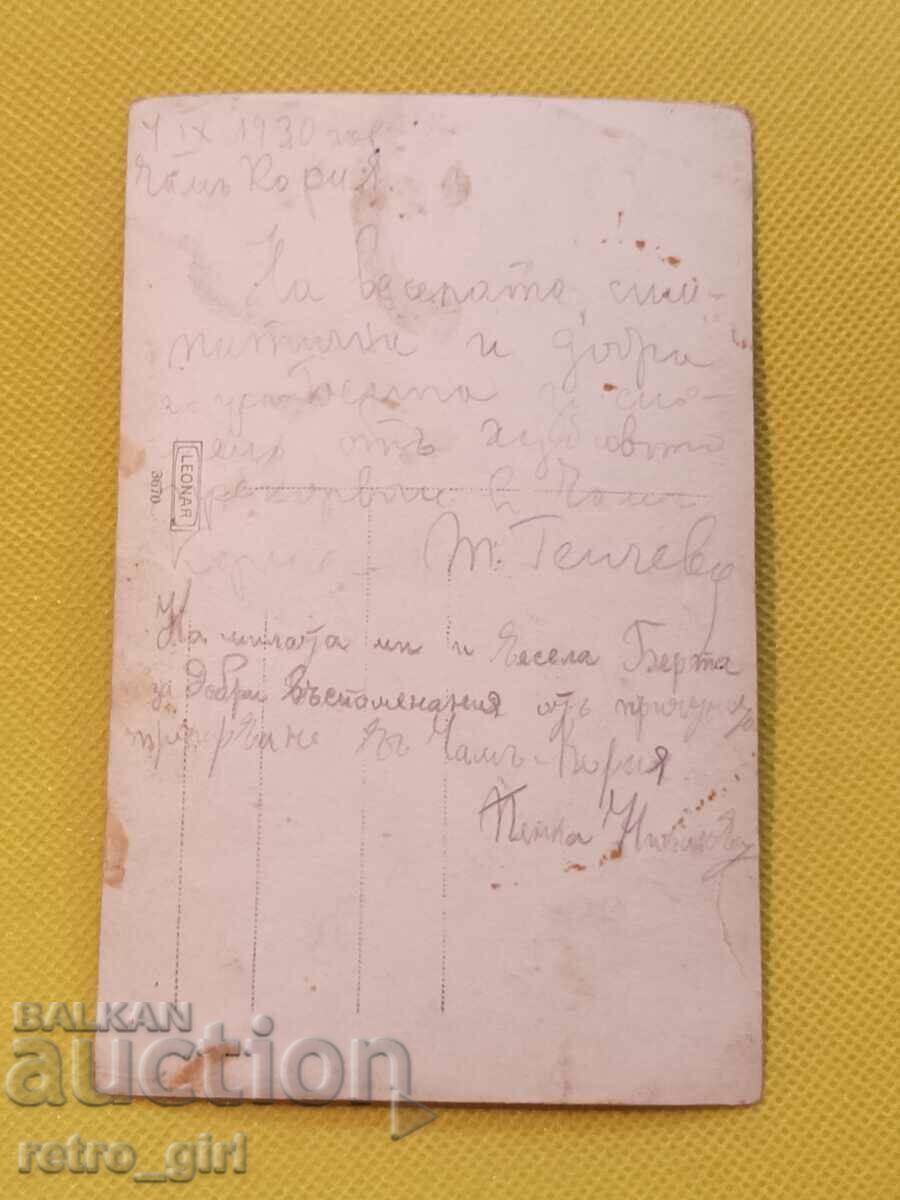 4 IX 1930 год
Чамъ Кория.
На веселата, сим-
патична и добра
г-ца Берта за спо-
мень отъ хубавото
в Чамъ
Кория - Т. Генчева
На милата ми и весела Берта
за добри въспоменания отъ
въ Чамъ-Кория
Пенка
LEONAR
3670
BALKAN
auction
retro_girl